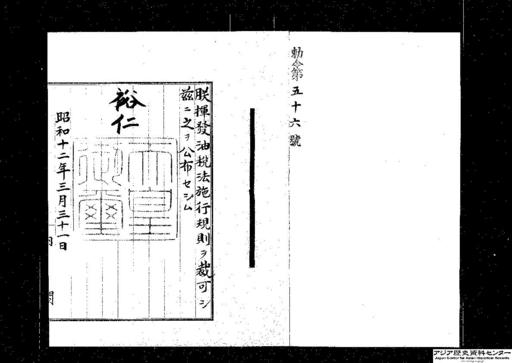 勅令第五十六號
朕揮發油税法施行規則ヲ裁可シ
茲ニ之ヲ公布セシム
裕仁
天皇御璽
昭和十二年三月三十一日
アジア歴史資料センター
Japan Center for Asian Historical Records